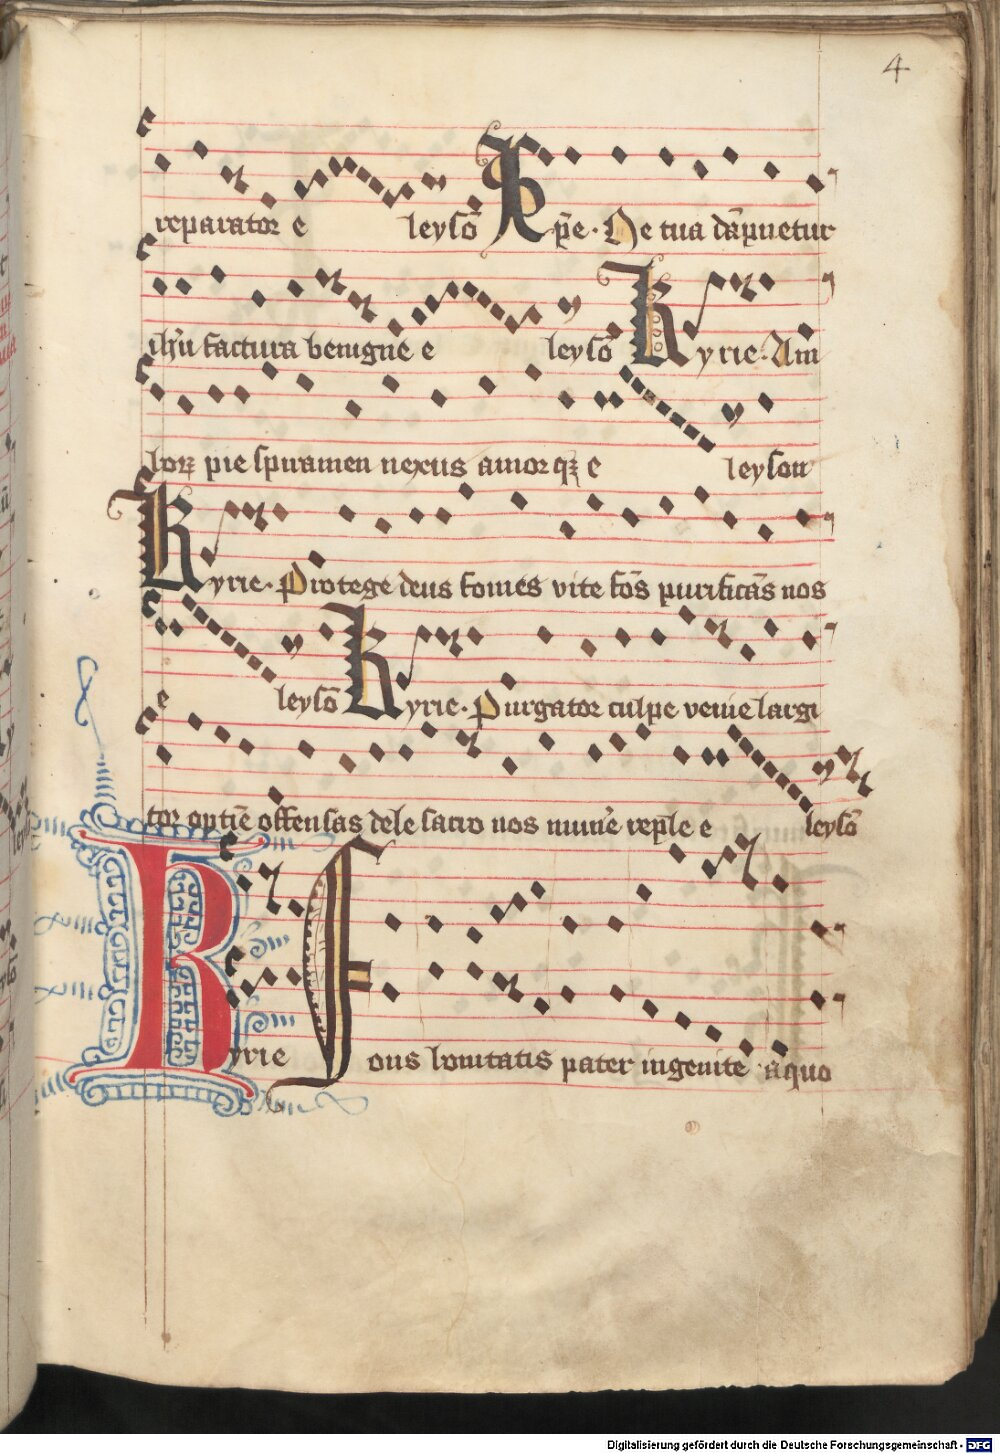 4
reparator e leysō Xpe. Ne tua dāpnetur
ih'u factura benigne e leysō Kyrie. Am
borꝝ pie spiramen nexus amor qꝫ e leyson
Kyrie. Protege deus fomes vite fōs purificās nos
e leysō Kyrie. Purgator culpe venie largi
tor optīe offensas dele sacro nos mun'e reple e leysō
Kyrie Fons bonitatis pater ingenite a quo
Digitalisierung gefördert durch die Deutsche Forschungsgemeinschaft - DFG